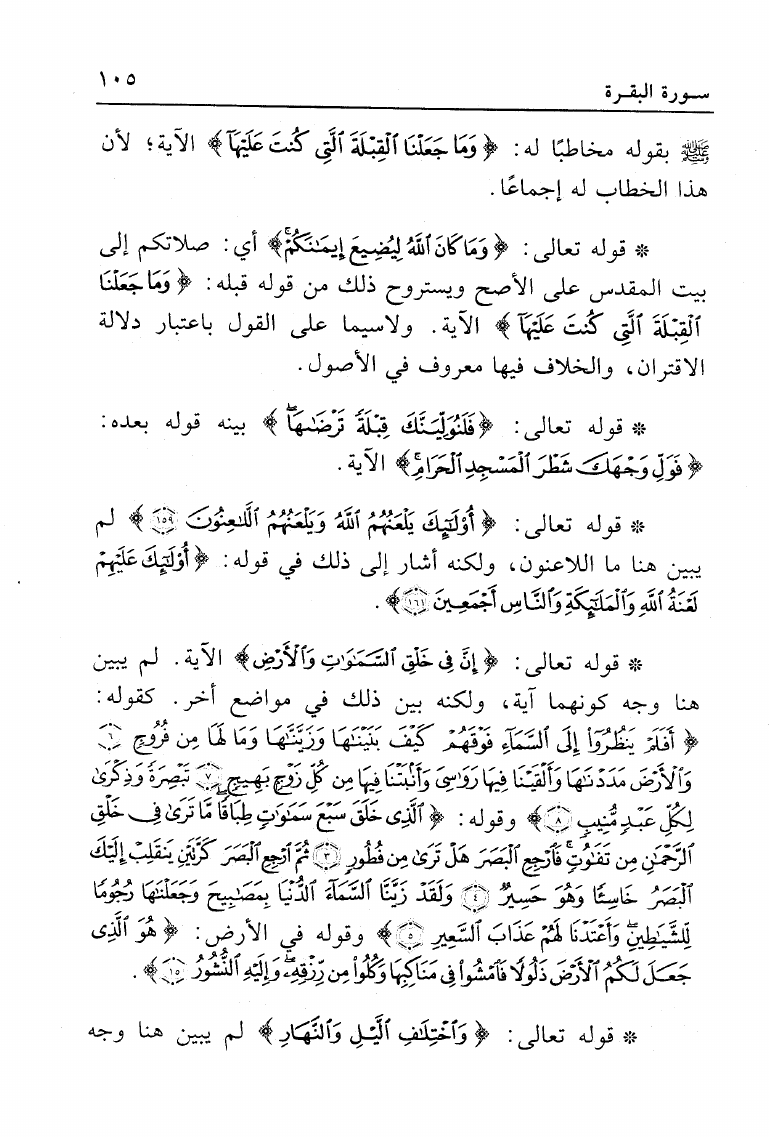 سورة البقرة ١٠٥
ﷺ بقوله مخاطبًا له: ﴿وَمَا جَعَلْنَا ٱلْقِبْلَةَ ٱلَّتِى كُنتَ عَلَيْهَآ﴾ الآية؛ لأن
هذا الخطاب له إجماعًا.
* قوله تعالى: ﴿وَمَا كَانَ ٱللَّهُ لِيُضِيعَ إِيمَـٰنَكُمْ ۚ﴾ أي: صلاتكم إلى
بيت المقدس على الأصح ويستروح ذلك من قوله قبله: ﴿وَمَا جَعَلْنَا
ٱلْقِبْلَةَ ٱلَّتِى كُنتَ عَلَيْهَآ﴾ الآية. ولاسيما على القول باعتبار دلالة
الاقتران، والخلاف فيها معروف في الأصول.
* قوله تعالى: ﴿فَلَنُوَلِّيَنَّكَ قِبْلَةً تَرْضَىٰهَا ۖ﴾ بينه قوله بعده:
﴿فَوَلِّ وَجْهَكَ شَطْرَ ٱلْمَسْجِدِ ٱلْحَرَامِ ۚ﴾ الآية.
* قوله تعالى: ﴿أُو۟لَـٰٓئِكَ يَلْعَنُهُمُ ٱللَّهُ وَيَلْعَنُهُمُ ٱللَّـٰعِنُونَ ١٥٩﴾ لم
يبين هنا ما اللاعنون، ولكنه أشار إلى ذلك في قوله: ﴿أُو۟لَـٰٓئِكَ عَلَيْهِمْ
لَعْنَةُ ٱللَّهِ وَٱلْمَلَـٰٓئِكَةِ وَٱلنَّاسِ أَجْمَعِينَ ١٦١﴾.
* قوله تعالى: ﴿إِنَّ فِى خَلْقِ ٱلسَّمَـٰوَٰتِ وَٱلْأَرْضِ﴾ الآية. لم يبين
هنا وجه كونهما آية، ولكنه بين ذلك في مواضع أخر. كقوله:
﴿أَفَلَمْ يَنظُرُوٓا۟ إِلَى ٱلسَّمَآءِ فَوْقَهُمْ كَيْفَ بَنَيْنَـٰهَا وَزَيَّنَّـٰهَا وَمَا لَهَا مِن فُرُوجٍ ٦
وَٱلْأَرْضَ مَدَدْنَـٰهَا وَأَلْقَيْنَا فِيهَا رَوَٰسِىَ وَأَنۢبَتْنَا فِيهَا مِن كُلِّ زَوْجٍۭ بَهِيجٍ ٧ تَبْصِرَةً وَذِكْرَىٰ
لِكُلِّ عَبْدٍ مُّنِيبٍ ٨﴾ وقوله: ﴿ٱلَّذِى خَلَقَ سَبْعَ سَمَـٰوَٰتٍ طِبَاقًا مَّا تَرَىٰ فِى خَلْقِ
ٱلرَّحْمَـٰنِ مِن تَفَـٰوُتٍ ۖ فَٱرْجِعِ ٱلْبَصَرَ هَلْ تَرَىٰ مِن فُطُورٍ ٣ ثُمَّ ٱرْجِعِ ٱلْبَصَرَ كَرَّتَيْنِ يَنقَلِبْ إِلَيْكَ
ٱلْبَصَرُ خَاسِئًا وَهُوَ حَسِيرٌ ٤ وَلَقَدْ زَيَّنَّا ٱلسَّمَآءَ ٱلدُّنْيَا بِمَصَـٰبِيحَ وَجَعَلْنَـٰهَا رُجُومًا
لِّلشَّيَـٰطِينِ ۖ وَأَعْتَدْنَا لَهُمْ عَذَابَ ٱلسَّعِيرِ ٥﴾ وقوله في الأرض: ﴿هُوَ ٱلَّذِى
جَعَلَ لَكُمُ ٱلْأَرْضَ ذَلُولًا فَٱمْشُوا۟ فِى مَنَاكِبِهَا وَكُلُوا۟ مِن رِّزْقِهِۦ ۖ وَإِلَيْهِ ٱلنُّشُورُ ١٥﴾.
* قوله تعالى: ﴿وَٱخْتِلَـٰفِ ٱلَّيْلِ وَٱلنَّهَارِ﴾ لم يبين هنا وجه